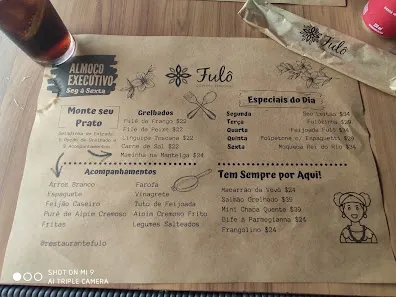 ALMOÇO
EXECUTIVO
Seg à Sexta
Fulô
Fulô
Monte seu
Prato
Grelhados
Filé de Frango $22
Filé de Peixe $22
Linguiça Toscana $22
Carne de Sol $22
Maminha na Manteiga $24
Especiais do Dia
Segunda
Terça
Quarta Feijoada Fulô $34
Quinta
Sexta Moqueca Rei do Rio $34
Acompanhamentos
Arroz Branco
Espaguete
Feijão Caseiro
Purê de Aipim Cremoso
Fritas
Farofa
Vinagrete
Tutu de Feijoada
Aipim Cremoso Frito
Legumes Salteados
Tem Sempre por Aqui!
Macarrão da Vovó $24
Salmão Grelhado $39
Mini Chapa Quente $39
Bife à Parmegianna $24
Frangolino $24
@restaurantefulo
SHOT ON MI 9
AI TRIPLE CAMERA